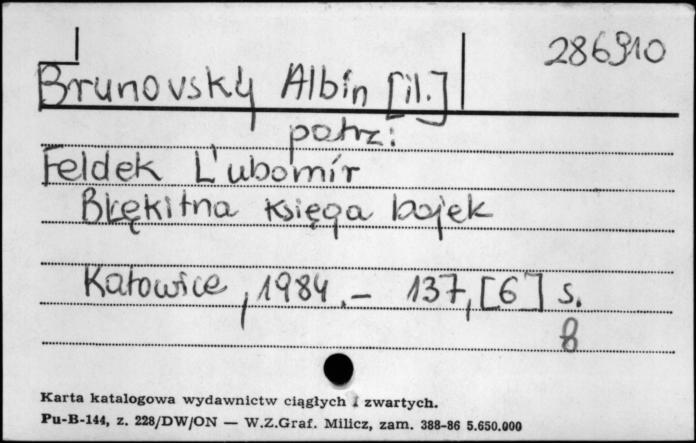 286910
Brunovský Albín [il.]
patrz:
Feldek L'ubomír
Błękitna księga bajek
Katowice, 1984. - 137, [6] s.
Karta katalogowa wydawnictw ciągłych i zwartych.
Pu-B-144, z. 228/DW/ON — W.Z.Graf. Milicz, zam. 388-86 5.650.000